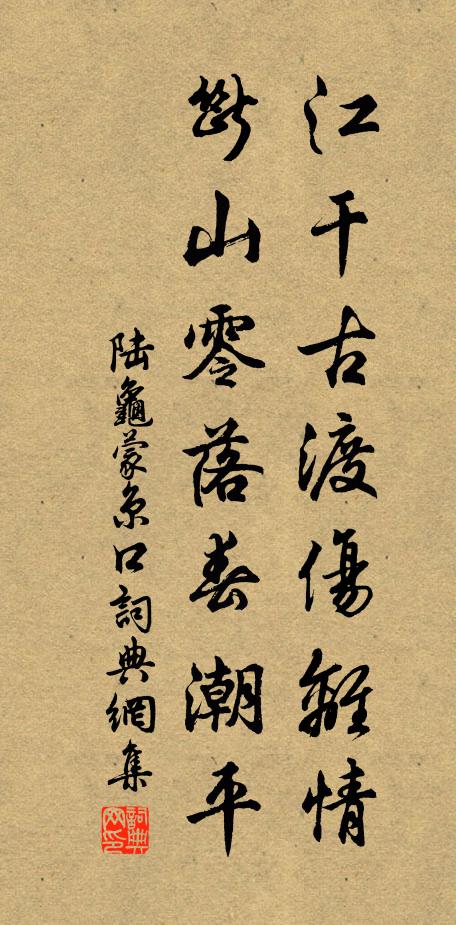 江干古渡傷離情
斷山零落春潮平
陸龜蒙京口詞典網集
詞典網印